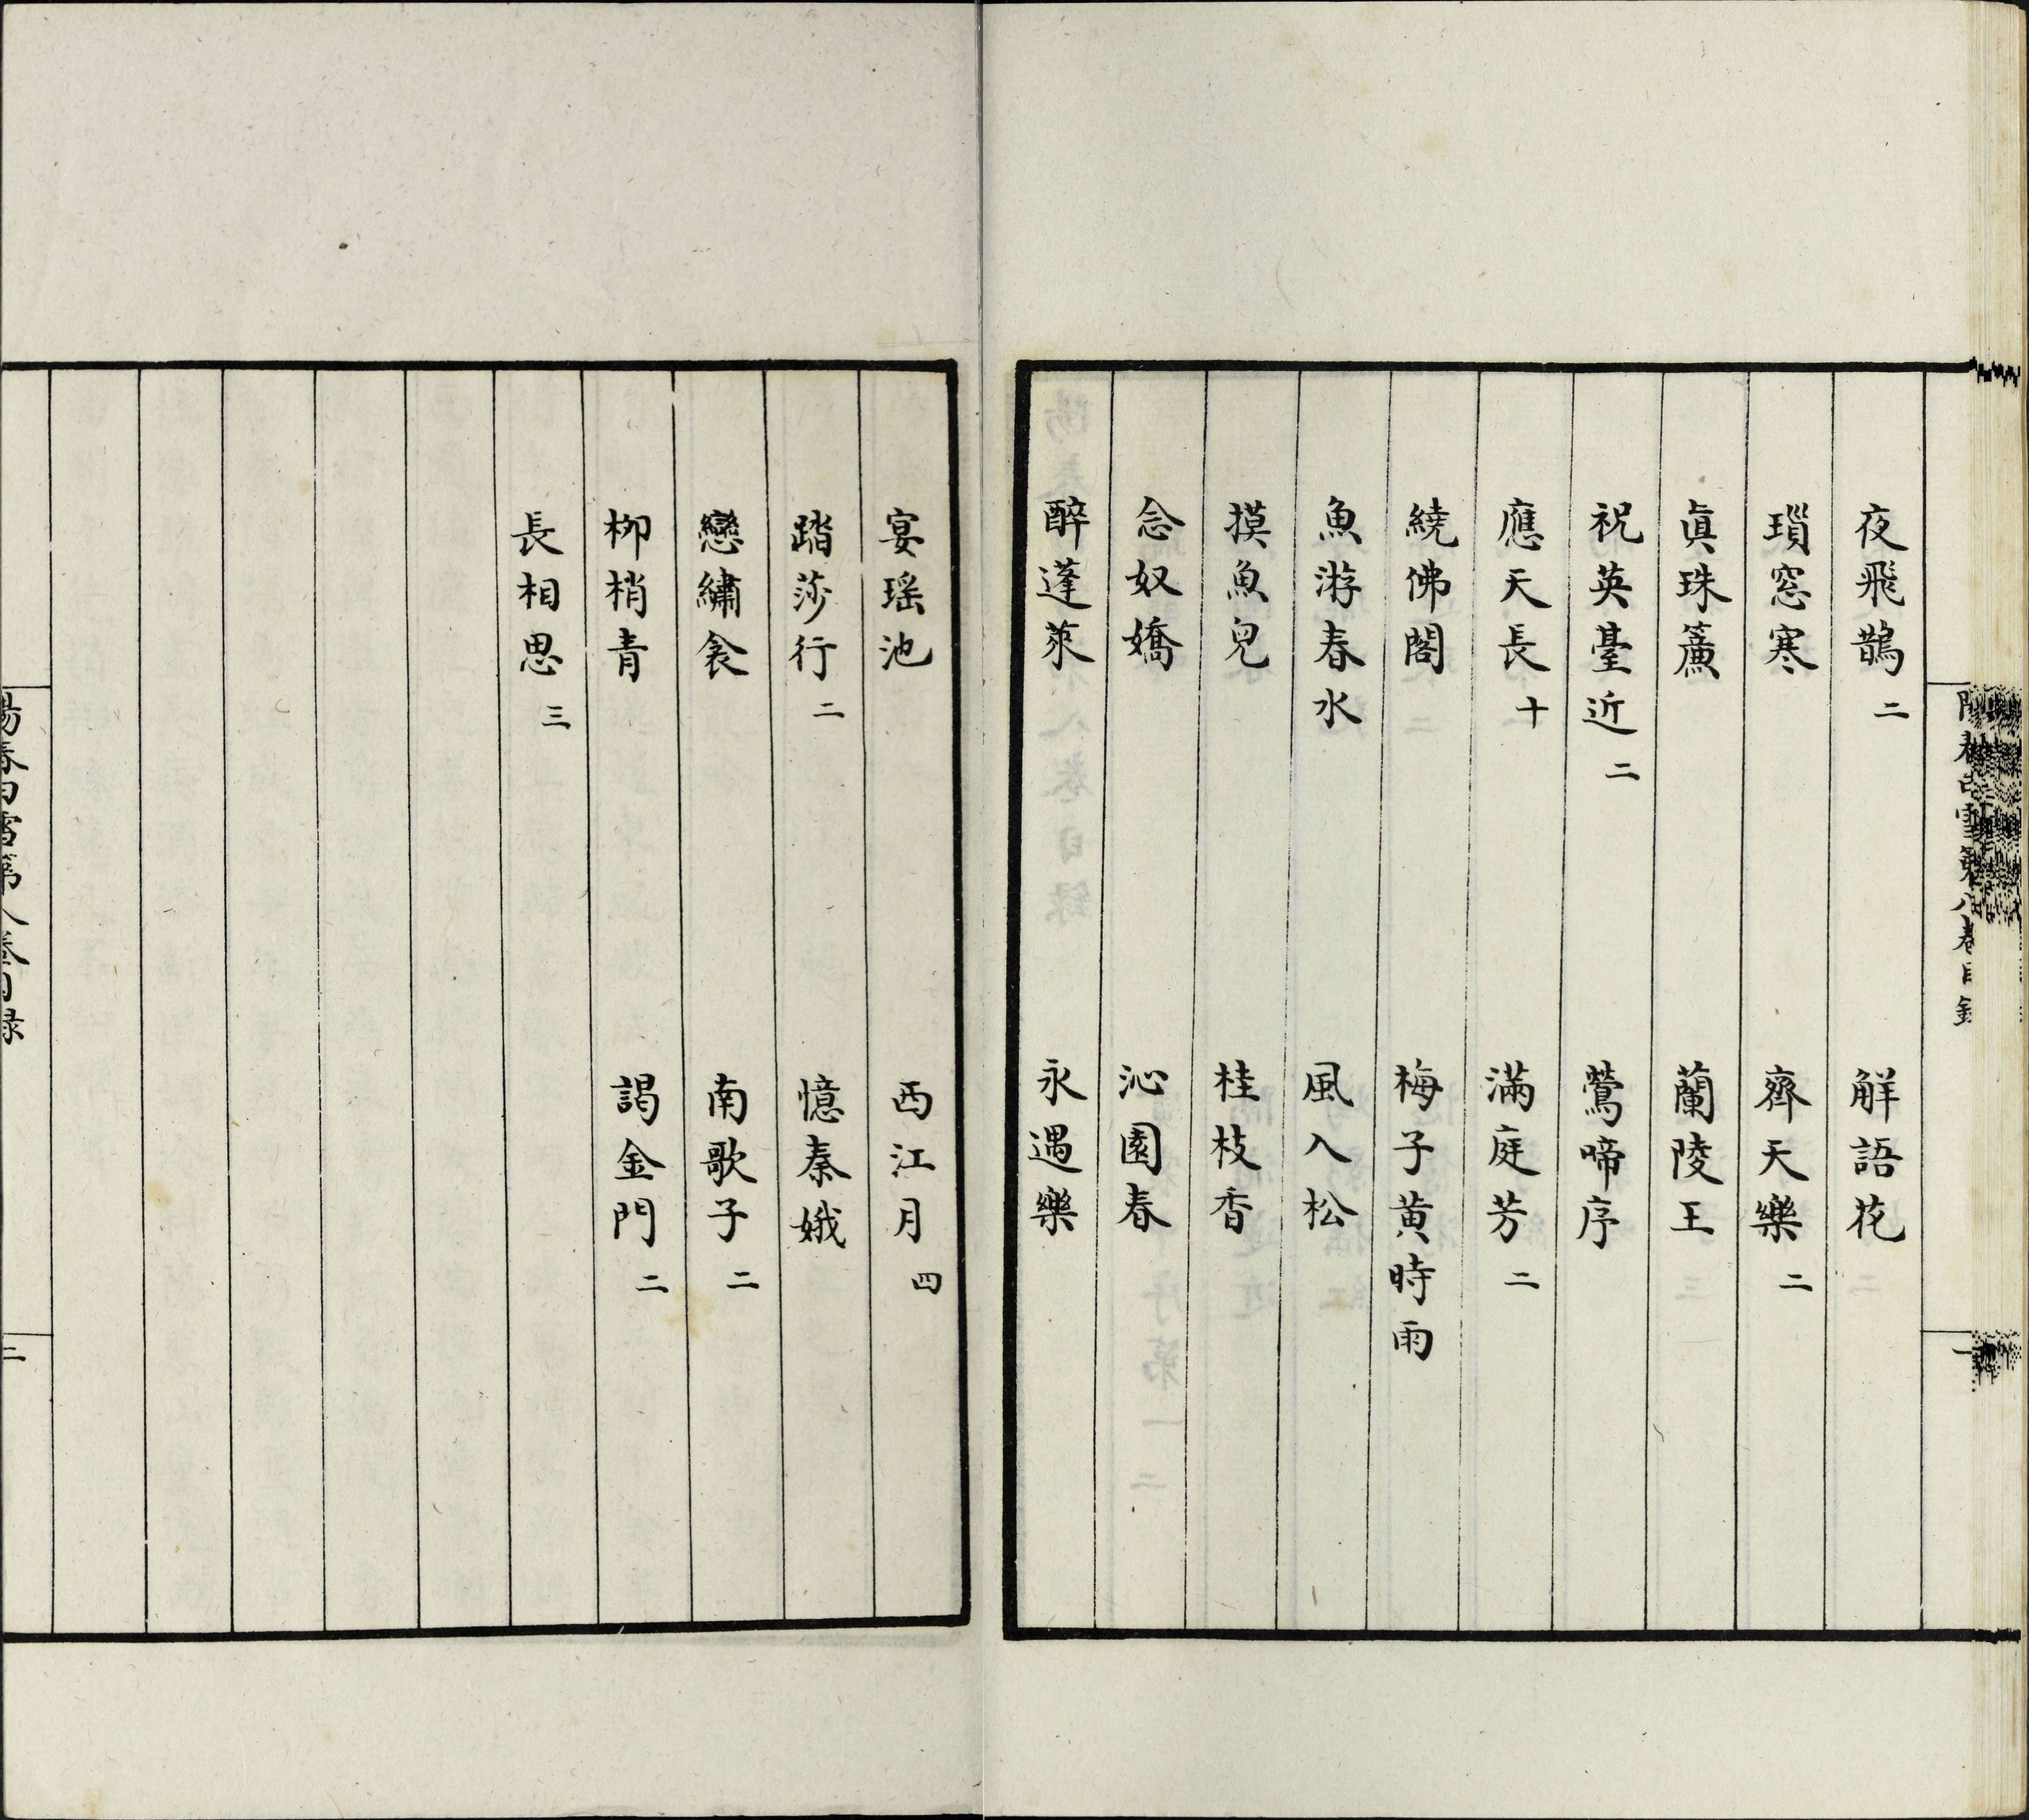 夜飛鵲二　解語花
瑣窓寒　齊天樂二
眞珠簾　蘭陵王
祝英臺近二　鶯啼序
應天長十　滿庭芳二
繞佛閣　梅子黄時雨
魚游春水　風入松
摸魚兒　桂枝香
念奴嬌　沁園春
醉蓬萊　永遇樂
宴瑤池　西江月四
踏莎行二　憶秦娥
戀繡衾　南歌子二
柳梢青　謁金門二
長相思三
陽春白雪第八卷目録　二